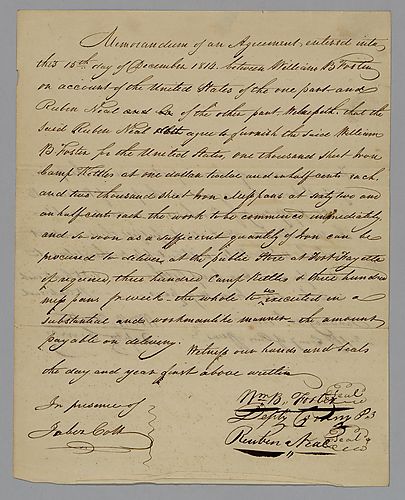 Memorandum of an Agreement, entered into
this 15th day of December 1814 between William B Foster
on account of the United States of the one part and
Reuben Neal and Co of the other part Witnesseth, that the
said Reuben Neal doth agree to furnish the said William
B Foster for the United States, one thousand Sheet Iron
Camp Kettles at one dollar twelve and an half cents each
and two thousand sheet Iron Mess pans at sixty two and
an half cents each the work to be commenced immediately
and so soon as a sufficient quantity of Iron can be
procured to deliver at the public Store at Fort Fayette
if required, three hundred Camp Kettles & three hundred
mess pans pr week. the whole to be executed in a
substantial and workmanlike manner the amount
payable on delivery.
Witness our hands and Seals
the day and year first above written
In presence of
Jabez Colt
Wm B. Foster Seal
Depty
Reuben Neal Seal